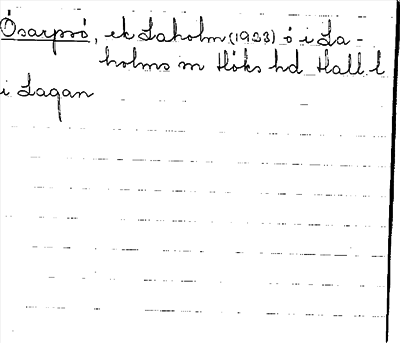 Ösarpsö, ek Laholm (1933) ö i La-
holms sn Höks hd Hall l
i Lagan